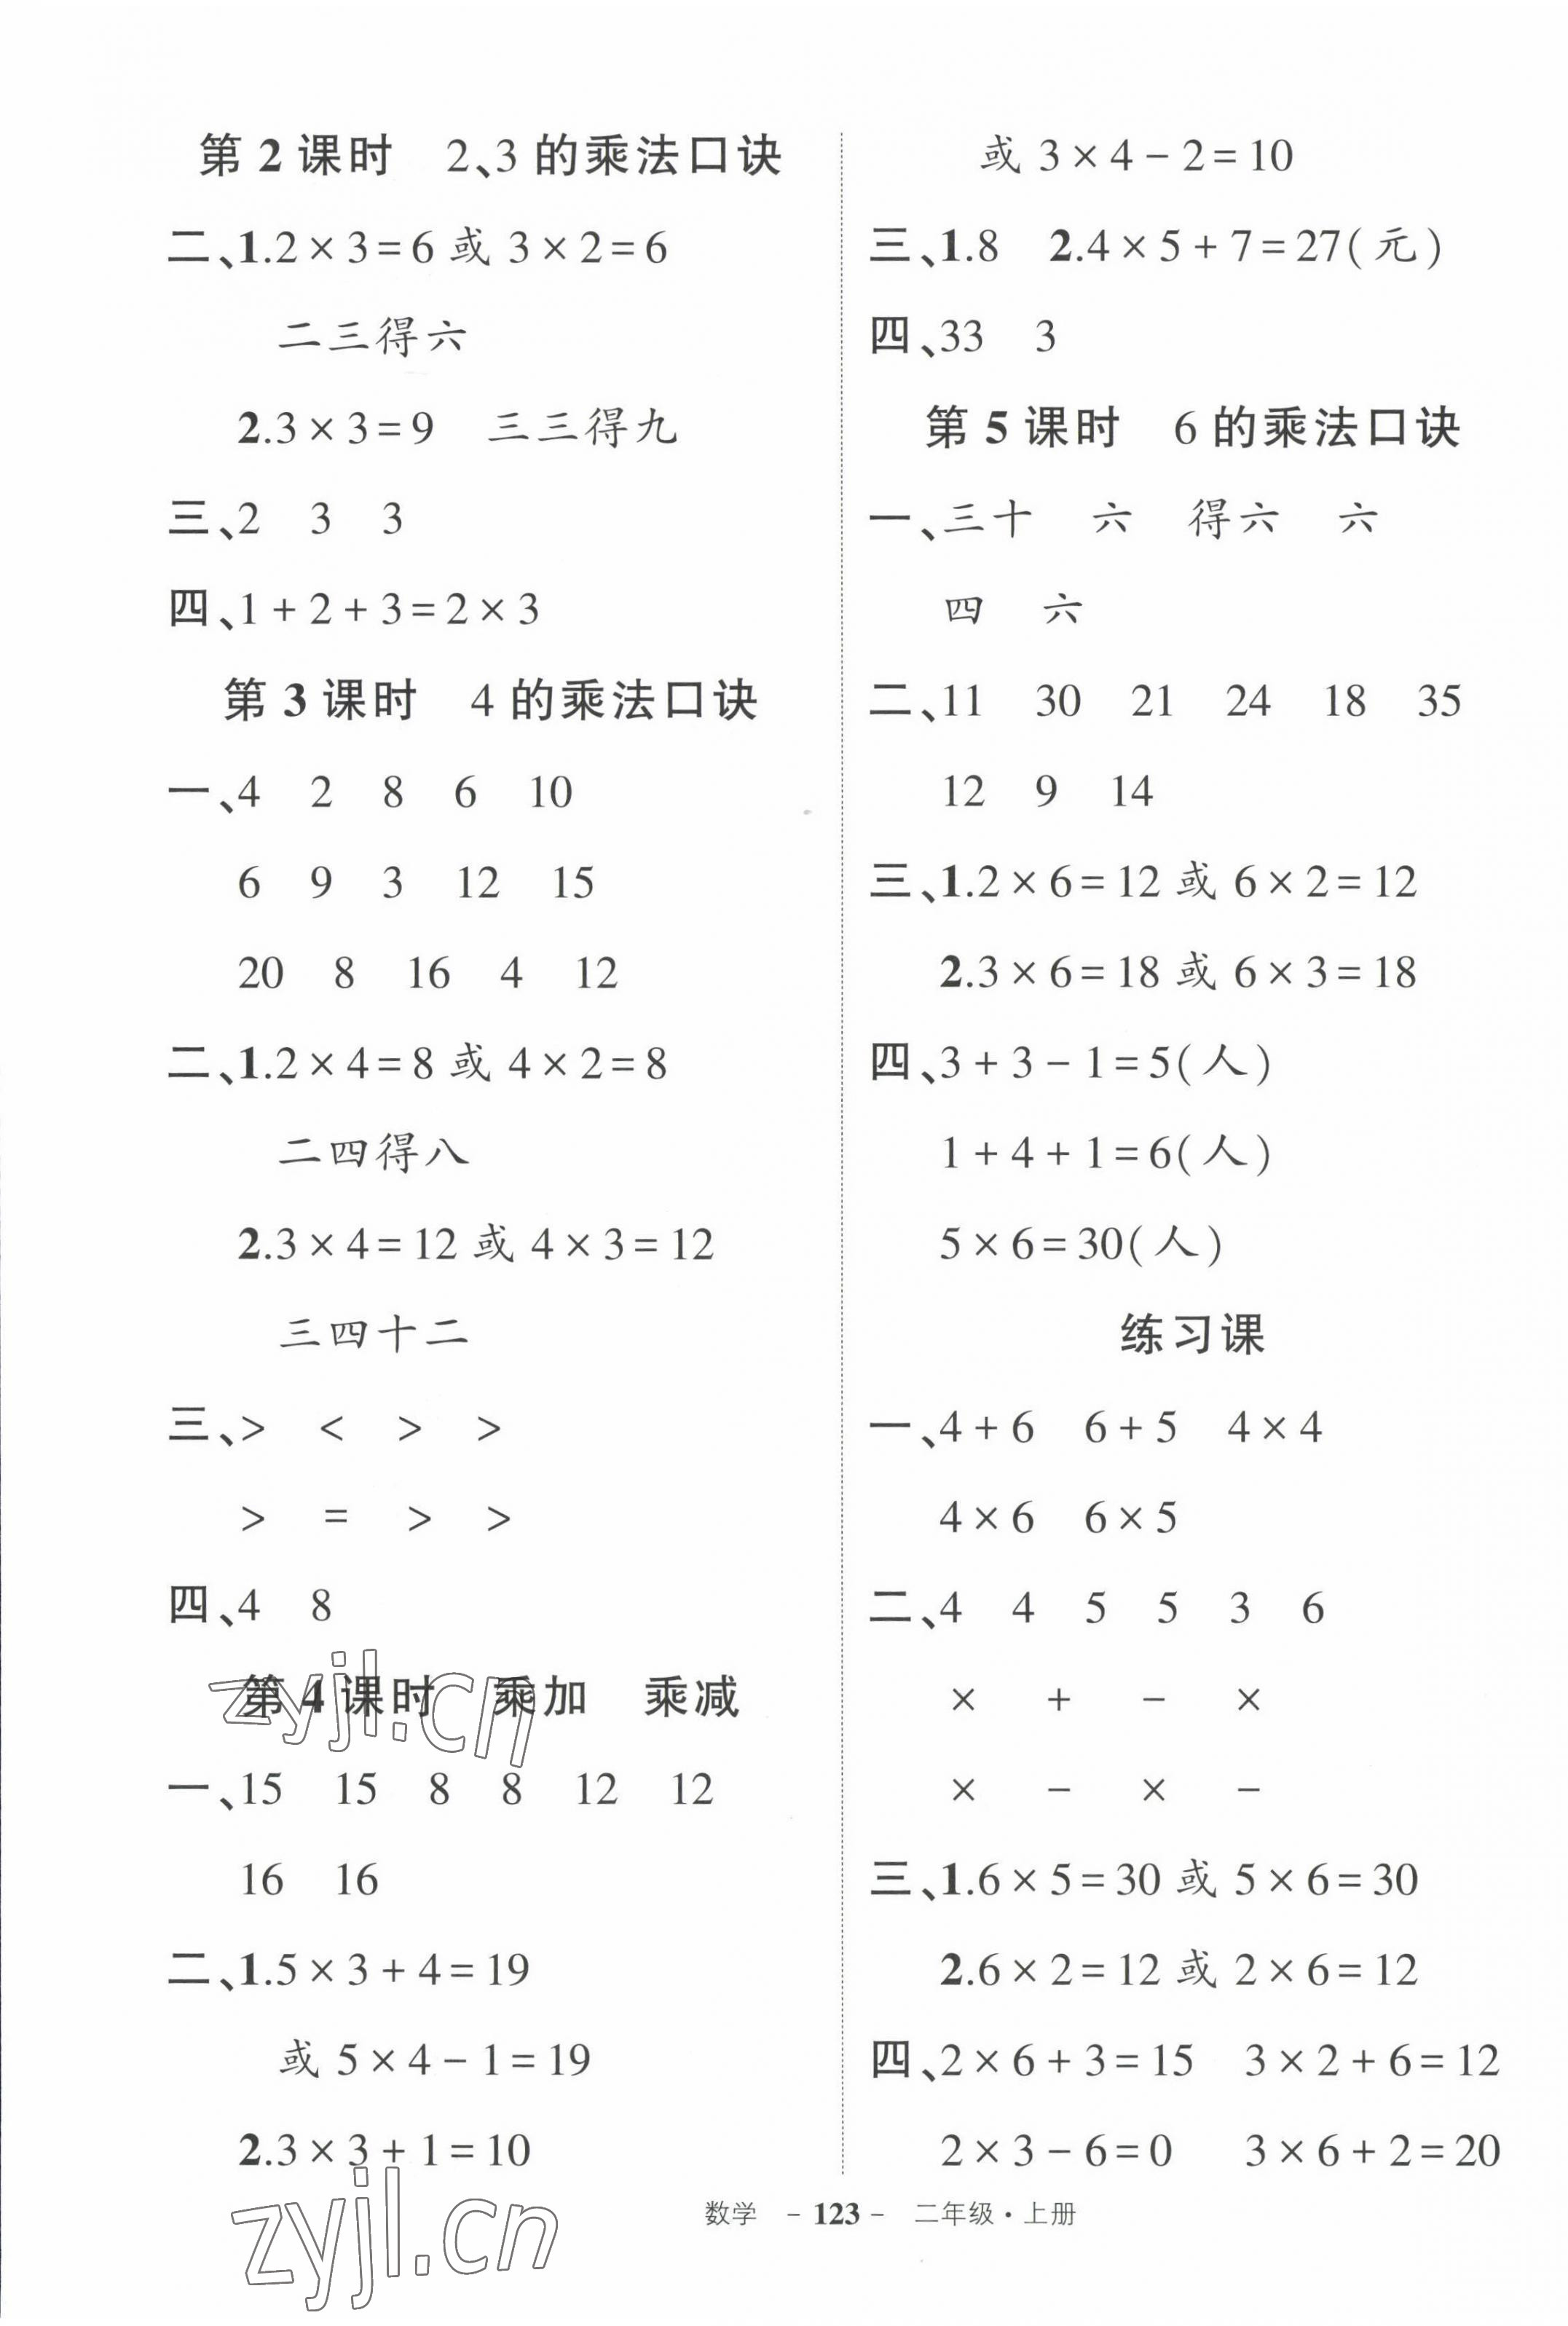 第2课时 2、3的乘法口诀
二、1.2×3=6或3×2=6
二三得六
2.3×3=9 三三得九
三、2 3 3
四、1+2+3=2×3
第3课时 4的乘法口诀
一、4 2 8 6 10
6 9 3 12 15
20 8 16 4 12
二、1.2×4=8或4×2=8
二四得八
2.3×4=12或4×3=12
三四十二
三、> < > >
> = > >
四、4 8
第4课时 乘加 乘减
一、15 15 8 8 12 12
16 16
二、1.5×3+4=19
或5×4-1=19
2.3×3+1=10
或3×4-2=10
三、1.8 2.4×5+7=27(元)
四、33 3
第5课时 6的乘法口诀
一、三十 六 得六 六
四 六
二、11 30 21 24 18 35
12 9 14
三、1.2×6=12或6×2=12
2.3×6=18或6×3=18
四、3+3-1=5(人)
1+4+1=6(人)
5×6=30(人)
练习课
一、4+6 6+5 4×4
4×6 6×5
二、4 4 5 5 3 6
× + - ×
× - × -
三、1.6×5=30或5×6=30
2.6×2=12或2×6=12
四、2×6+3=15 3×2+6=12
2×3-6=0 3×6+2=20
数学 -123- 二年级·上册
zyjl.cn
zyjl.cn